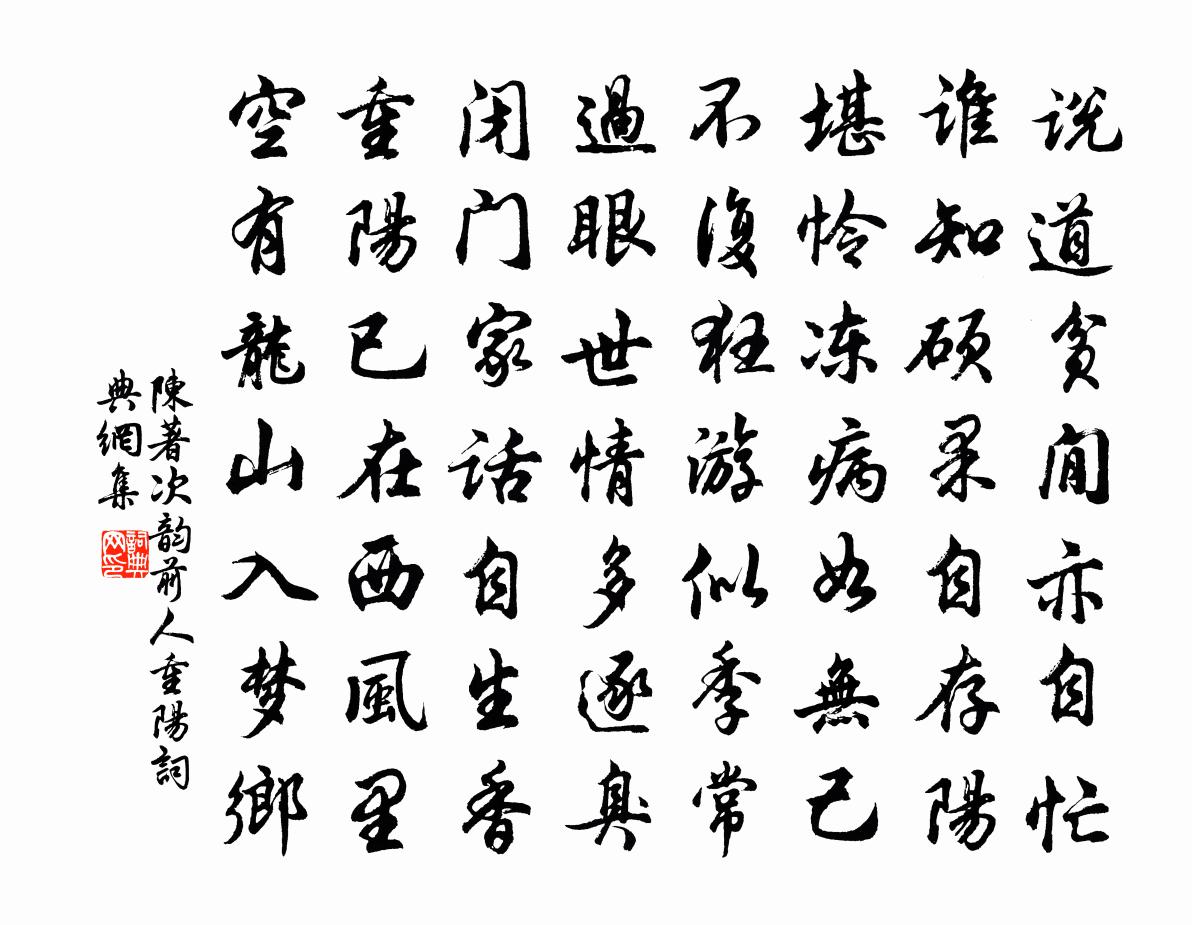 说道贫閒亦自忙
谁知硕果自存陽
堪怜冻病如無己
不復狂游似季常
過眼世情多逐臭
闭门家话自生香
重陽已在西風里
空有龍山入梦鄉
陳著次韵前人重陽詞
典網集
詞典
网印